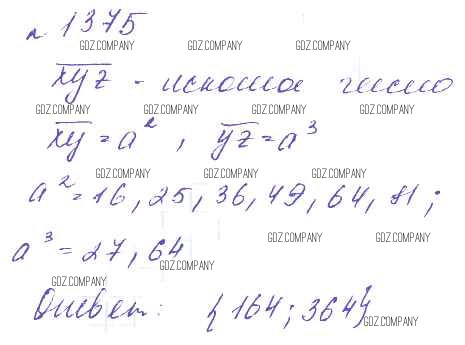 n 1375
GDZ.COMPANY GDZ.COMPANY GDZ.COMPANY
xyz - искомое число
GDZ.COMPANY GDZ.COMPANY GDZ.COMPANY GDZ.COMPANY
xy = a², yz = a³
GDZ.COMPANY GDZ.COMPANY GDZ.COMPANY
a² = 16, 25, 36, 49, 64, 81;
GDZ.COMPANY GDZ.COMPANY
a³ = 27, 64
GDZ.COMPANY
GDZ.COMPANY
Ответ: {164; 364}
GDZ.COMPANY